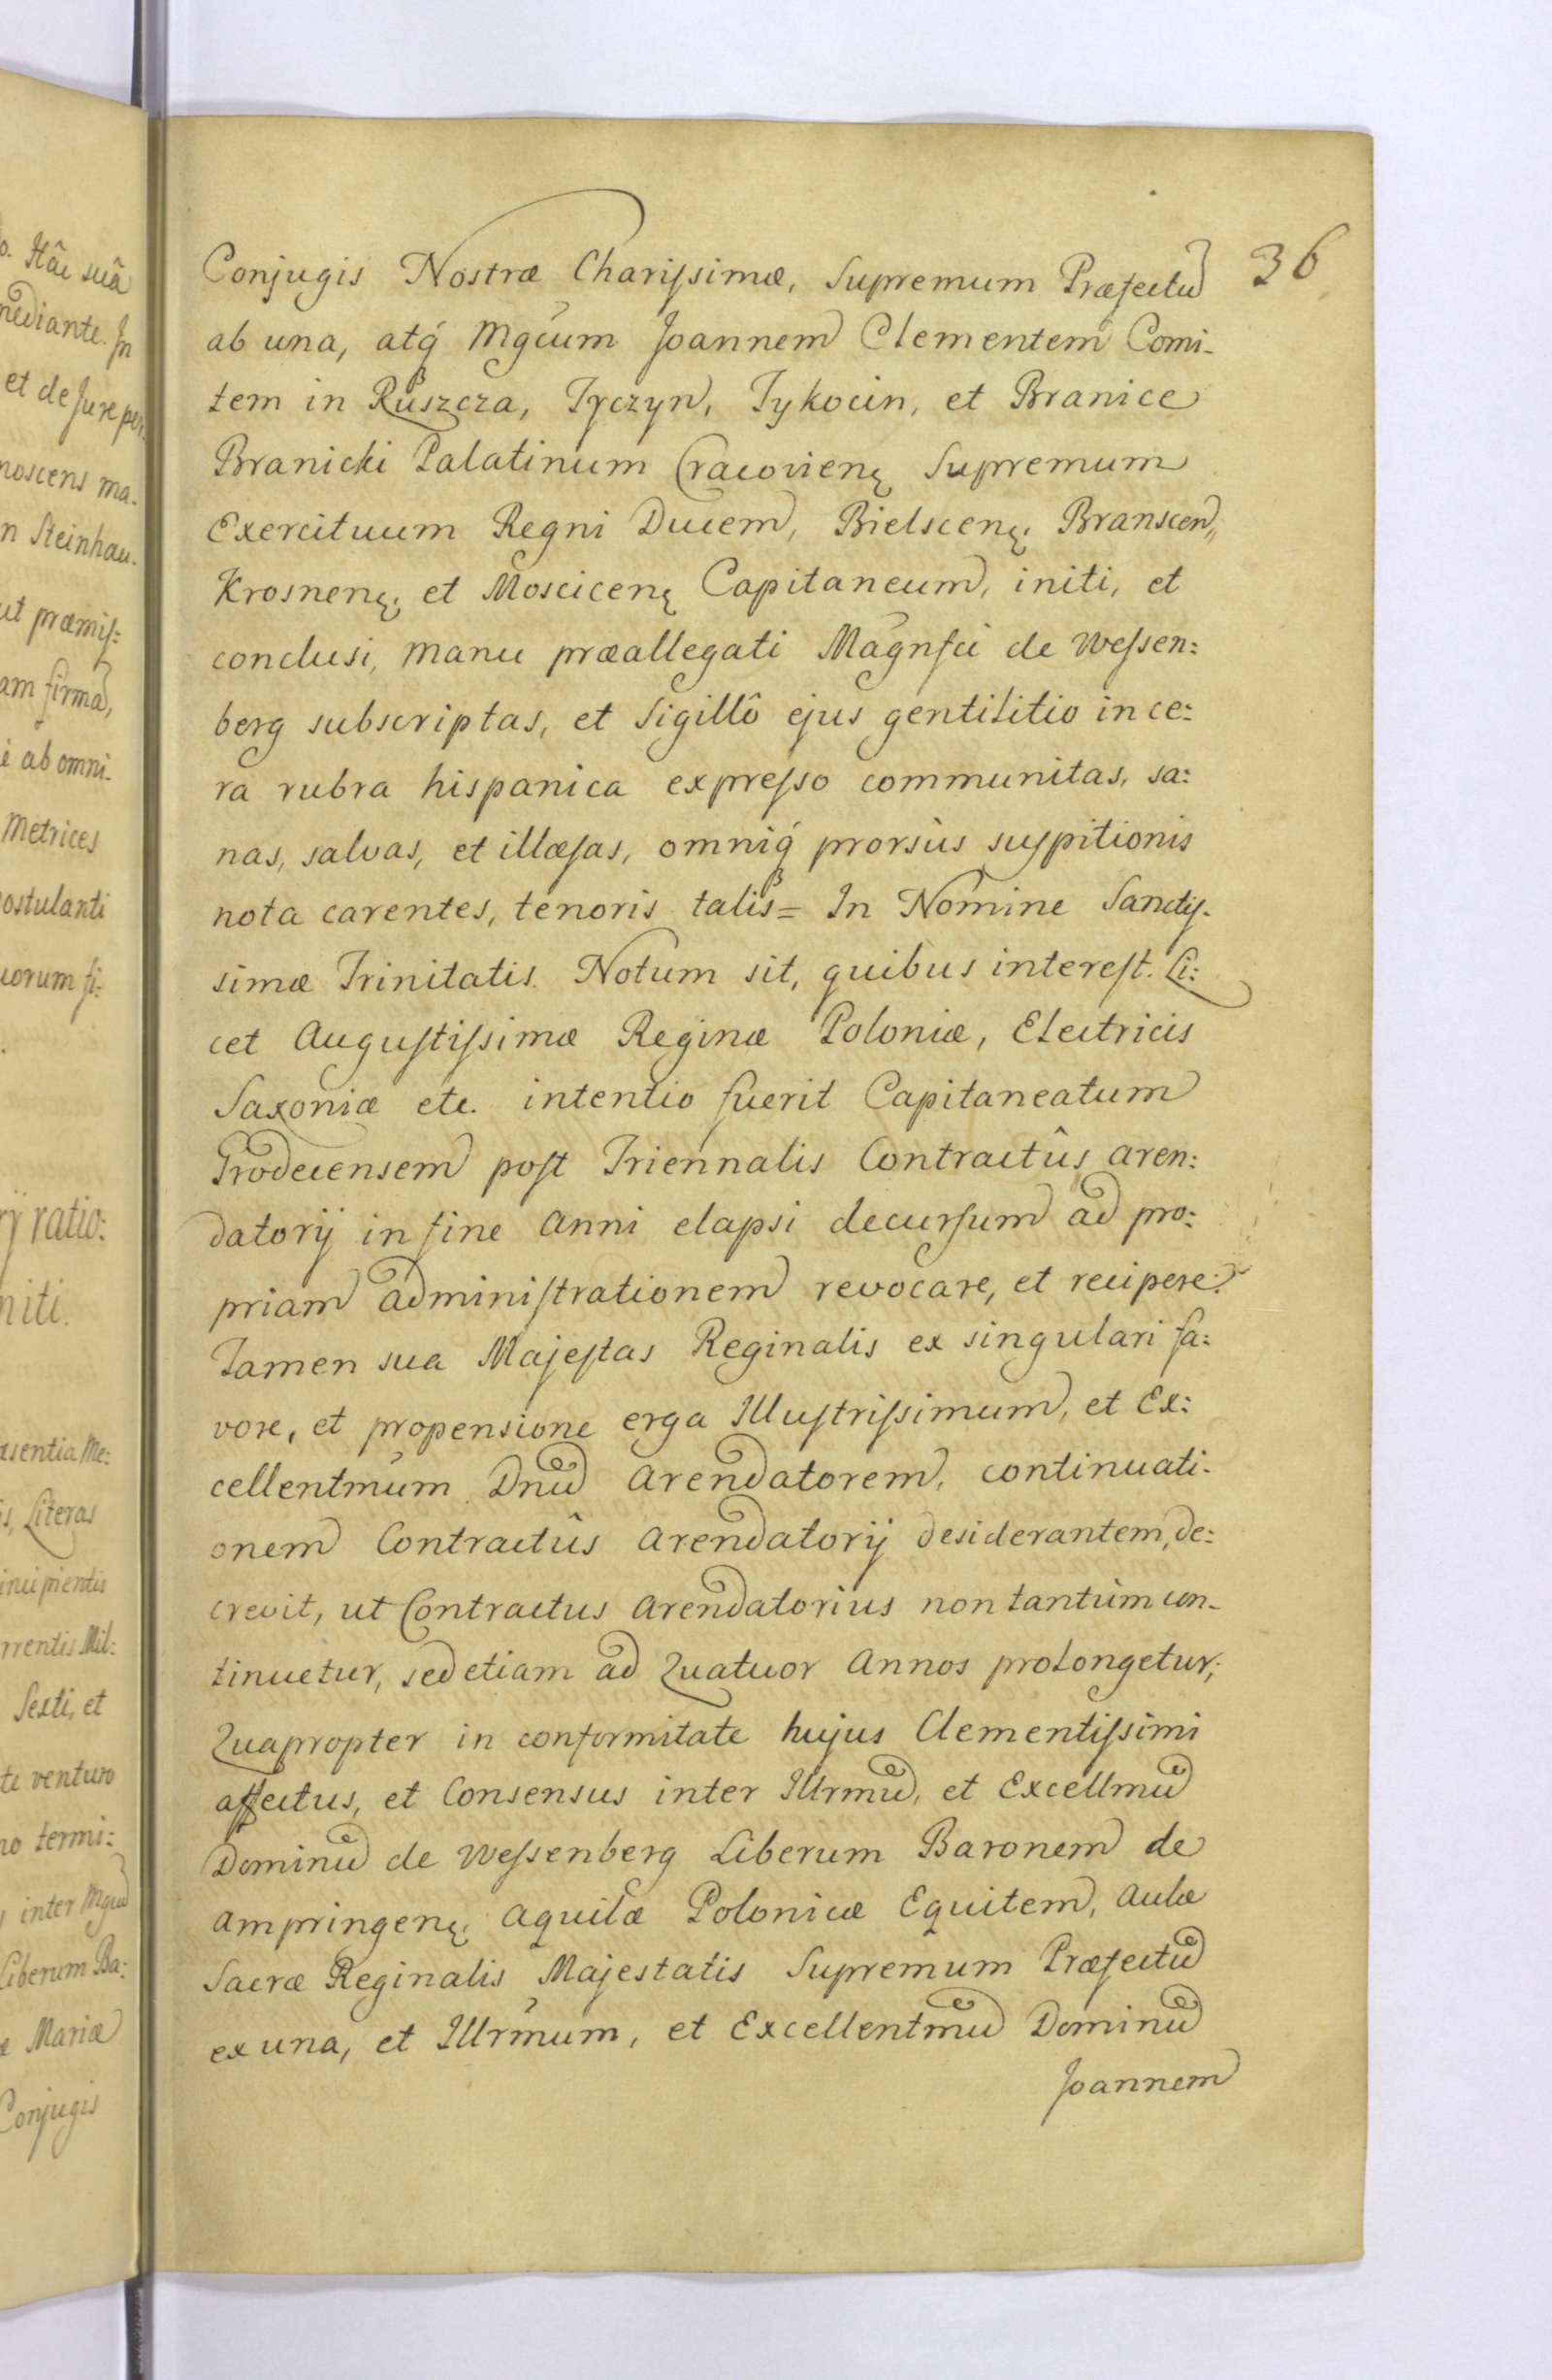 36
Conjugis Nostræ Charissimæ, Supremum Præfectū
ab una, atq́ Mgcum Joannem Clementem Comi-
tem in Ruszcza, Tyczyn, Tykocin, et Branice
Branicki Palatinum Cracovienę Supremum
Exercituum Regni Ducem, Bielscenę, Branscen,,
Krosnenę, et Moscicenę Capitaneum, initi, et
conclusi, manu præallegati Magnfci de Wessen:
berg subscriptas, et Sigillô ejus gentilitio in ce:
ra rubra hispanica expresso communitas, sa:
nas, salvas, et illæsas, omniq́ prorsùs suspitionis
nota carentes, tenoris talis = In Nomine Sanctis-
simæ Trinitatis. Notum sit, quibus interest. Li:
cet Augustissimæ Reginæ Poloniæ, Electricis
Saxoniæ etc. intentio fuerit Capitaneatum
Grodecensem post Triennalis Contractûs aren:
datorij in fine Anni elapsi decursum ad pro:
priam administrationem revocare, et recipere:
Tamen sua Majestas Reginalis ex singulari fa:
vore, et propensione erga Illustrissimum, et Ex:
cellentmum Dnū Arendatorem, continuati-
onem Contractûs Arendatorij desiderantem, de:
crevit, ut Contractus Arendatorius non tantùm con-
tinuetur, sed etiam ad Quatuor Annos prolongetur;
Quapropter in conformitate hujus Clementissimi
affectus, et Consensus inter Illrmū, et Excellmū
Dominū de Wessenberg Liberum Baronem de
Ampringenę, Aquilæ Polonicæ Equitem, Aulæ
Sacræ Reginalis Majestatis Supremum Præfectū
ex una, et Illrmum, et Excellentmū Dominū
Joannem